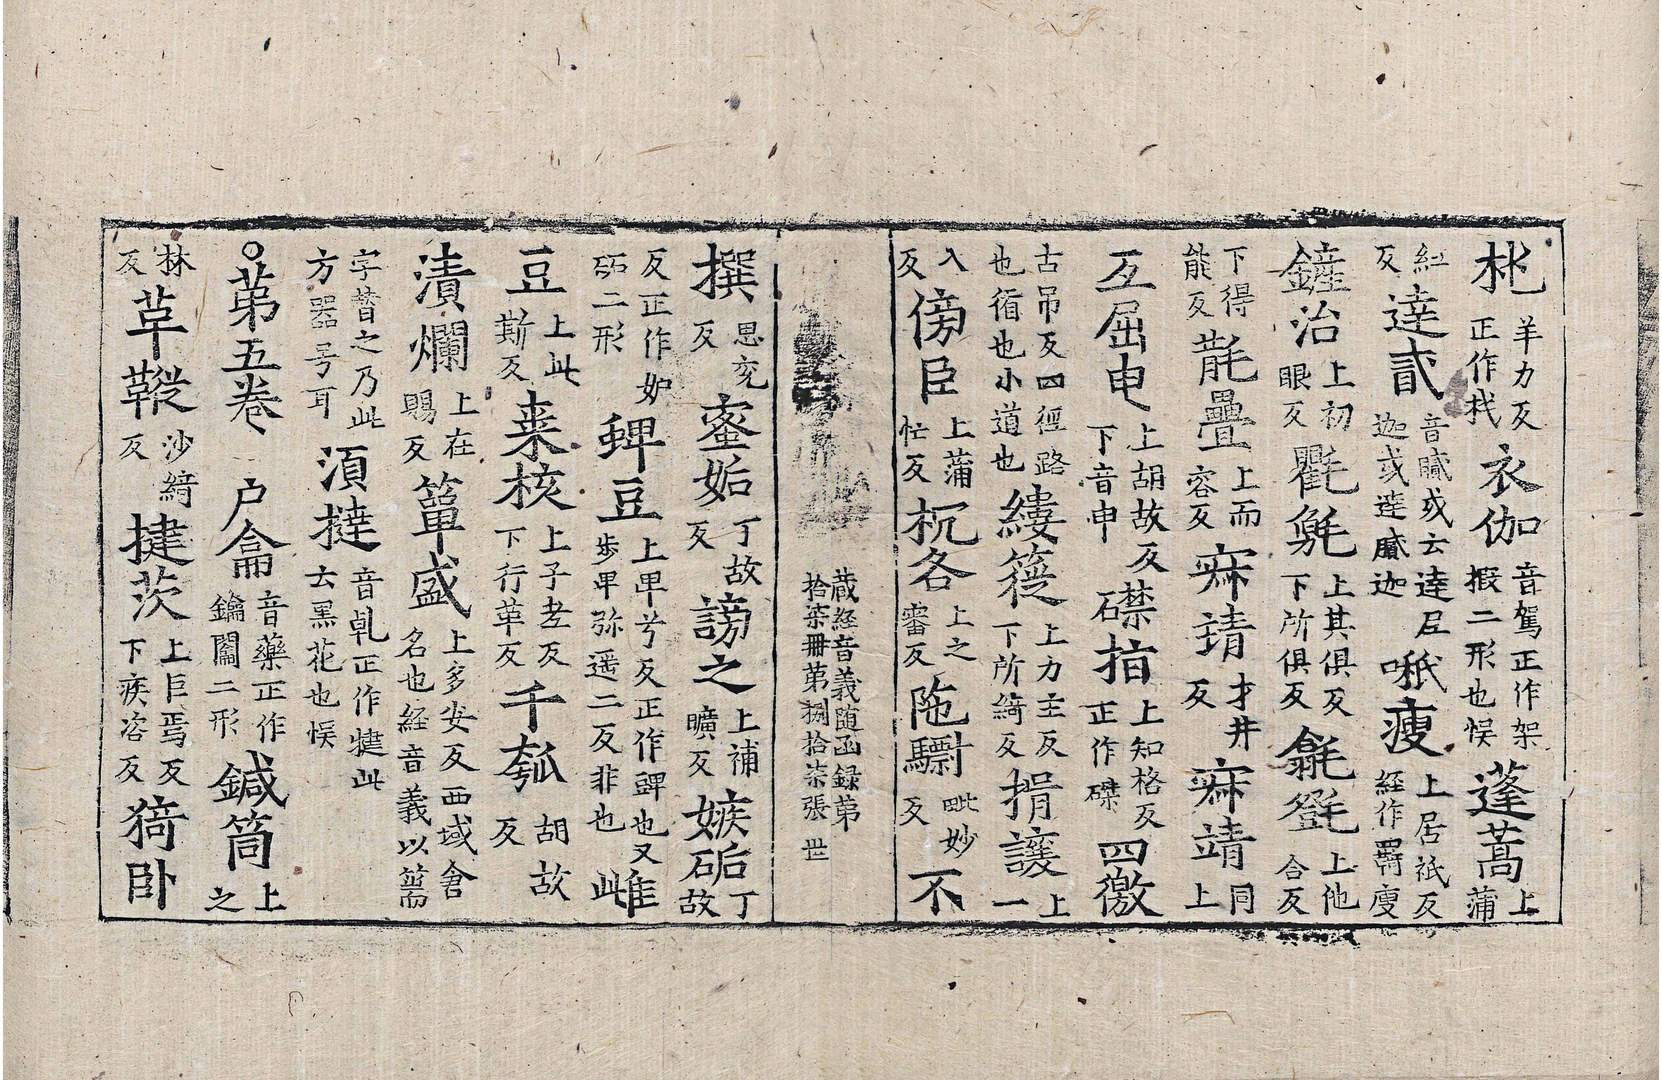 杙羊力反正作杙衣伽音駕正作架椵二形也悮蓬蒿上蒲
紅反達貳音膩或云達尼迦或達膩迦哌瘦上居祇反經作羇廋
鏟治上初眼反氍毹上其俱反下所俱反毾㲪上他合反
下得能反毾疊上而容反寐請才井反寐靖同上
互屈申上胡故反下音申磔拍上知格反正作磔四徼
古吊反四徑路也循也小道也縷簁上力主反下所綺反揖讓上一
入反傍臣上蒲忙反枕各上之審反陁驃毗妙反不
藏經音義随函録苐拾柒冊苐捌拾柒張 世
撰思兖反蜜妬丁故反謗之上補曠反嫉妬丁故
反正作妒妬二形蜱豆上卑兮反正作蜱也又步卑弥遥二反非也雌
豆上此斯反棗核上子老反下行革反千瓠胡故反
漬爛上在賜反簞盛上多安反西域食名也經音義以簞
字替之乃此方器号耳須撻音乹正作犍此云黑花也悮
○苐五卷 户龠音藥正作鑰闔二形鍼筒上之
林反草鞾沙綺反揵茨上巨焉反下疾咨反猗卧